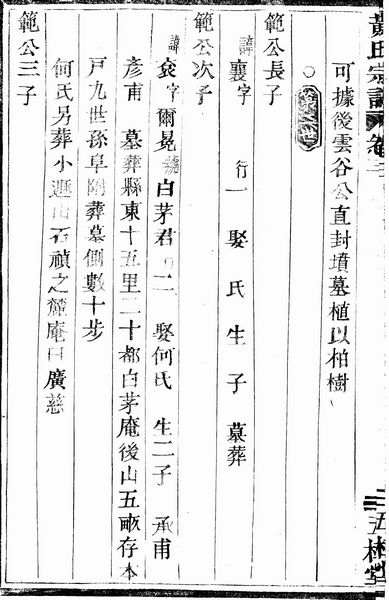 黃氏宗譜 卷三
可據後雲谷公直封墳墓植以柏樹
範公長子
諱襄字 行一 娶氏生子 墓葬
範公次子
諱袞字爾晃號白茅君 二 娶何氏 生二子 承甫
彥甫 墓葬縣東十五里二十都白茅庵後山五畝存本
戸九世孫阜 葬墓側數十步
何氏另葬小遯山石禎之麓庵曰廣慈
範公三子
林堂